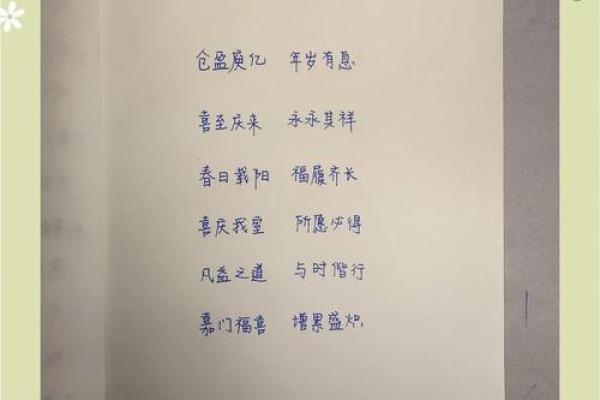 仓盈庾亿 年岁有息
喜至庆来 永永其祥
春日载阳 福履齐长
喜庆我室 所愿必得
凡益之道 与时偕行
嘉门福喜 增累盛炽